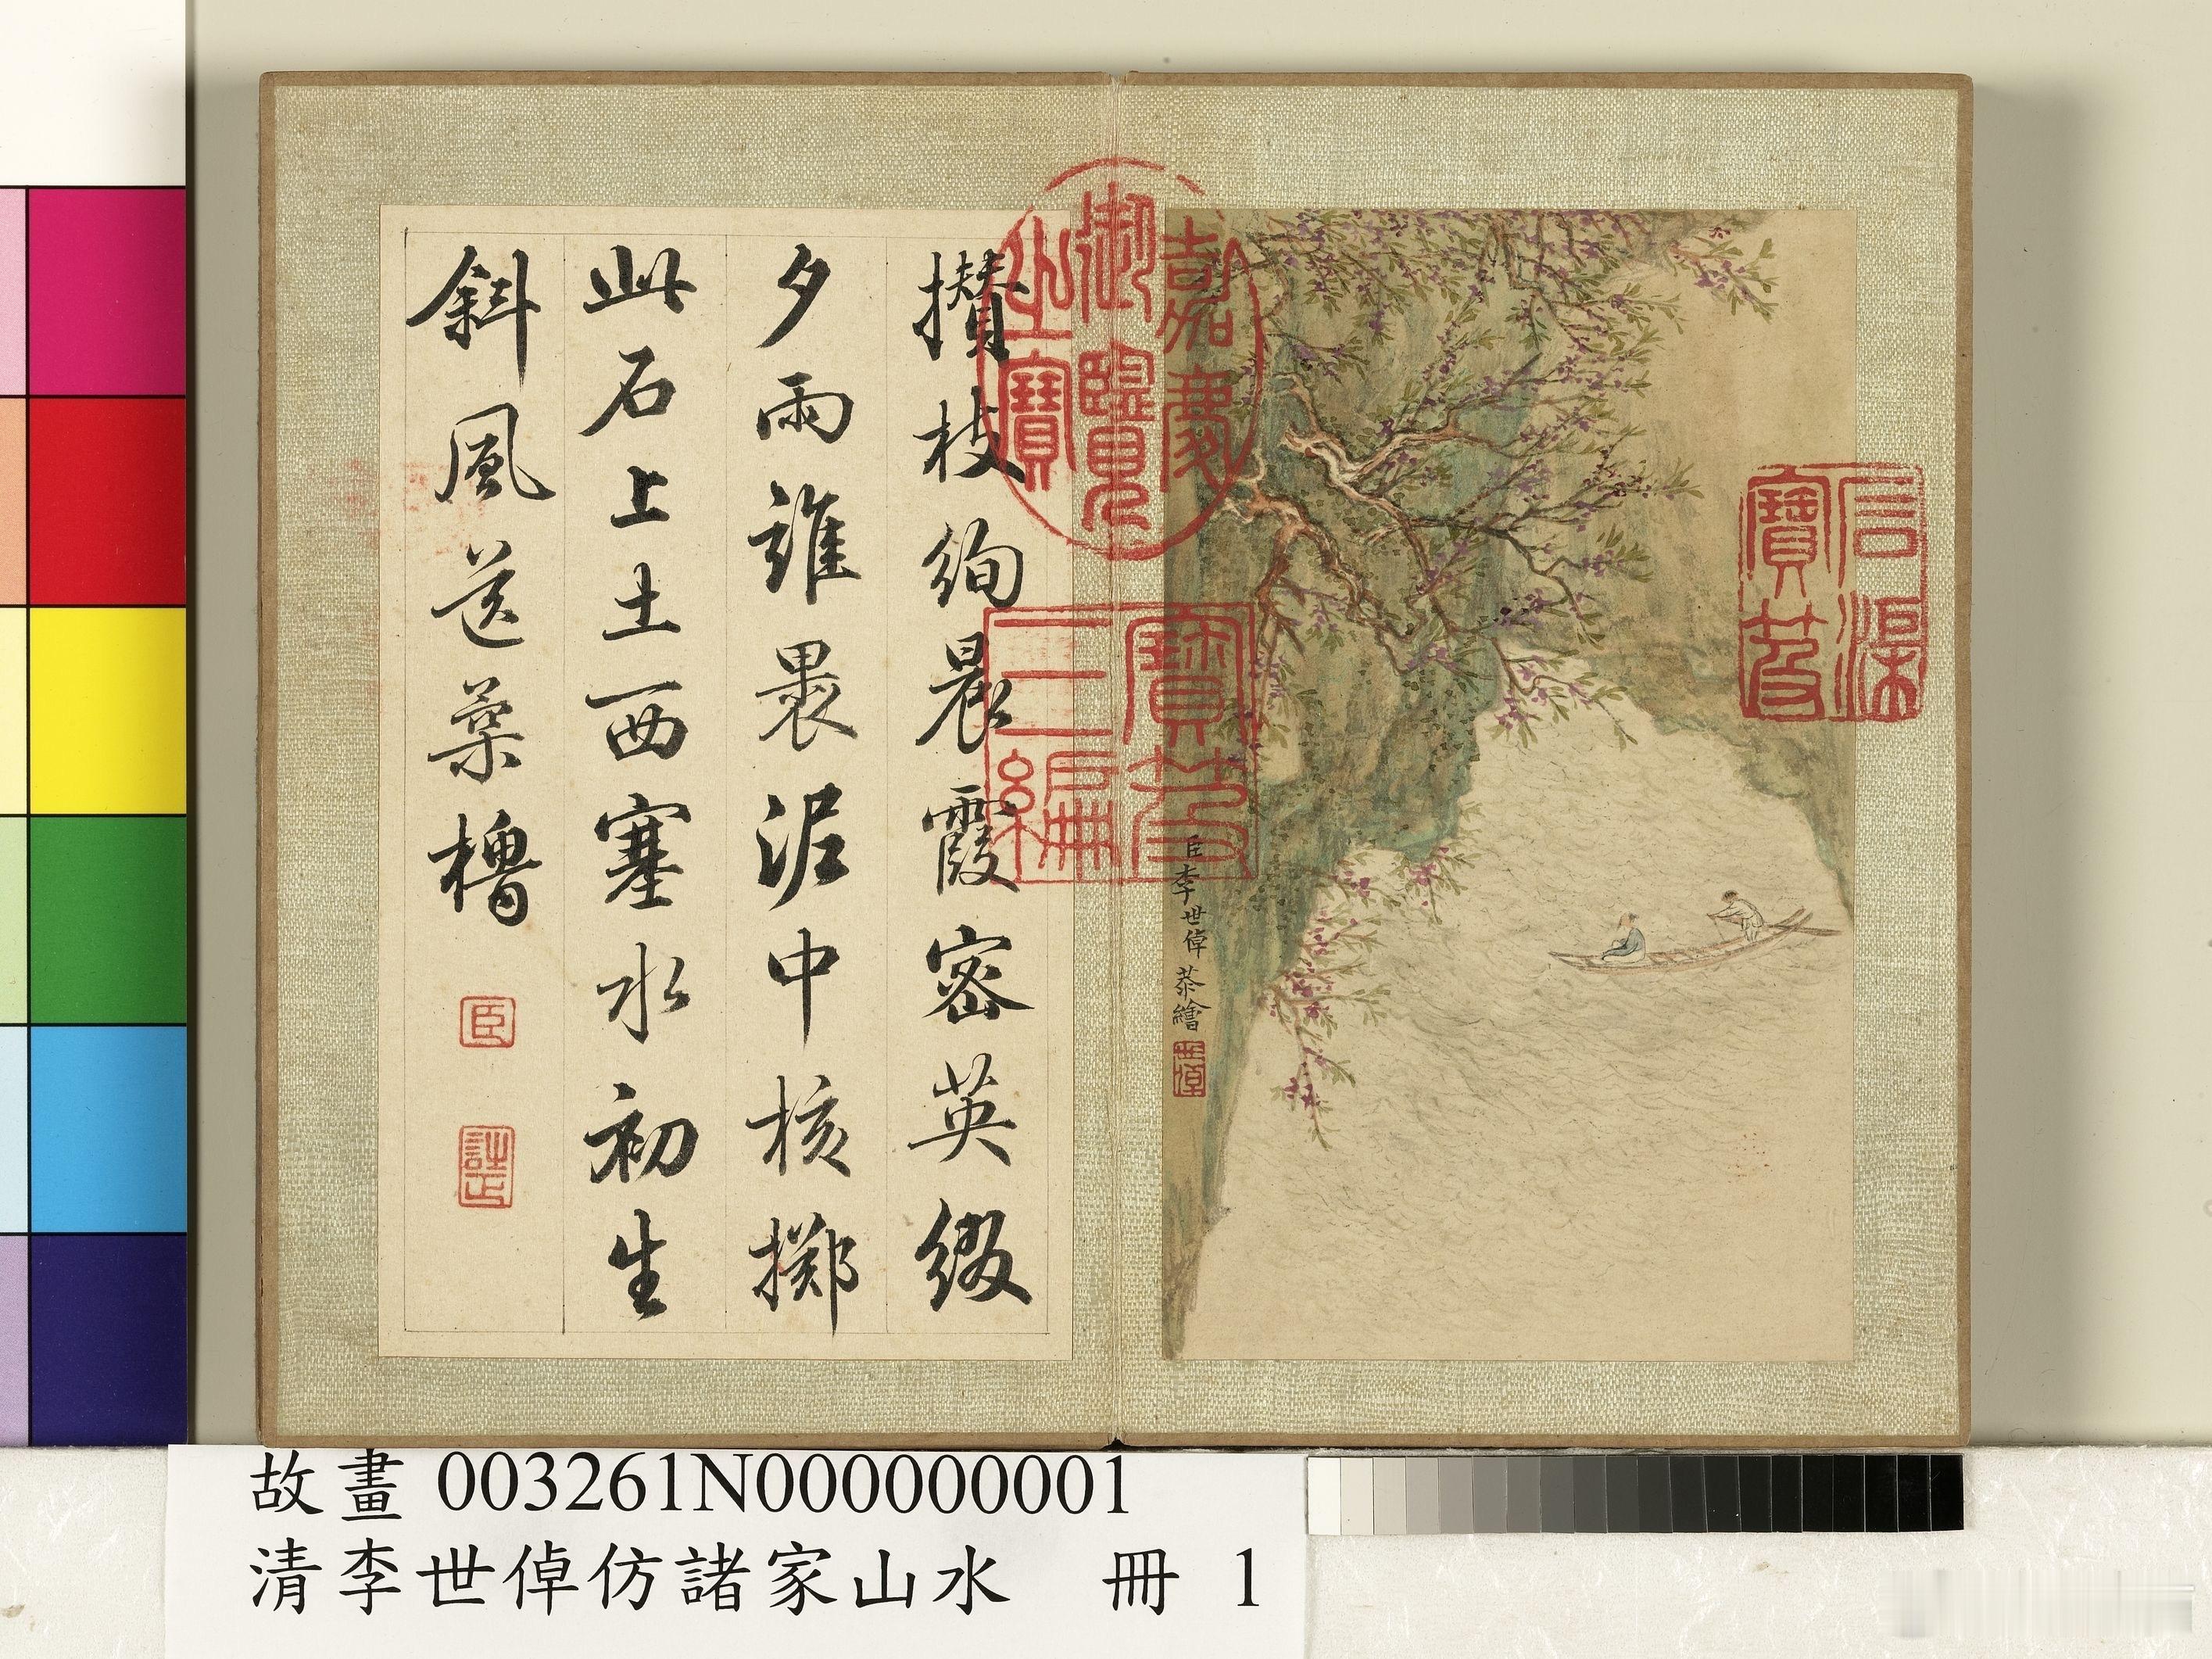 攢枝絢晨霞密英綴
夕雨誰畏泥中核擲
此石上土西塞水初生
斜風送葉櫓
臣
詩正
嘉慶
御覽
之寶
寶笈
三編
石渠
寶笈
臣李世倬恭繪
世倬
故畫 003261N000000001
清李世倬仿諸家山水 冊 1